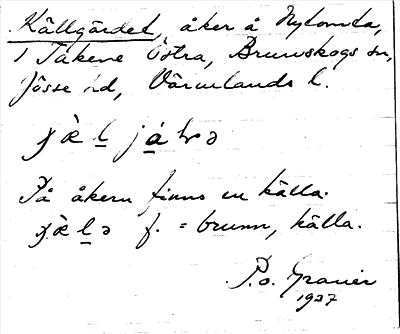 Källgärdet, åker å Nytomta,
i Takene Östra, Brunskogs sn,
Jösse hd, Värmlands l.
På åkern finns en källa.
f. = brunn, källa.
P.o. Granér
1937